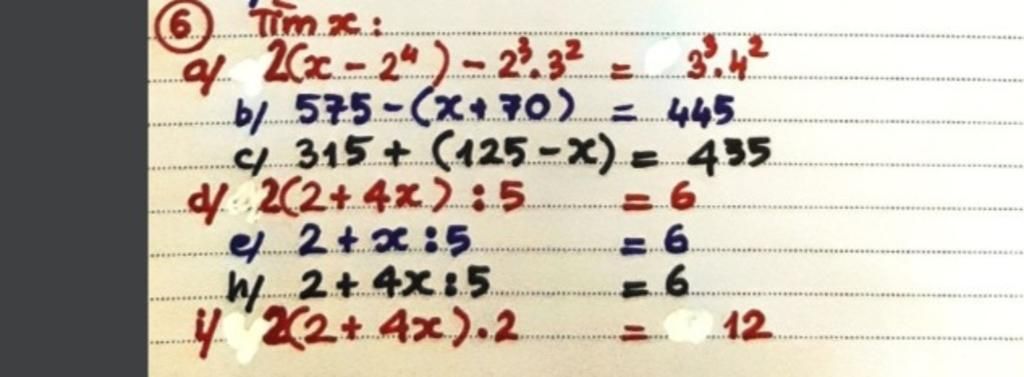 ⑥ Tìm x:
a/ 2(x - 2⁴) - 2³.3² = 3³.4²
b/ 575 - (x + 70) = 445
c/ 315 + (125 - x) = 435
d/ 2(2 + 4x) : 5 = 6
e/ 2 + x : 5 = 6
h/ 2 + 4x : 5 = 6
i/ 2(2 + 4x).2 = 12